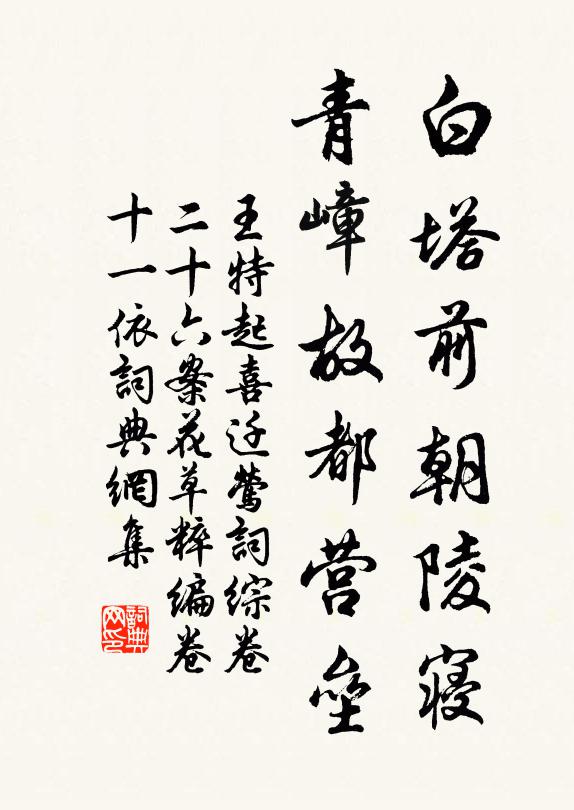 白塔前朝陵寝
青嶂故都营垒
王特起喜迁莺詞综卷
二十六案花草粹编卷
十一依詞典網集
詞典网印